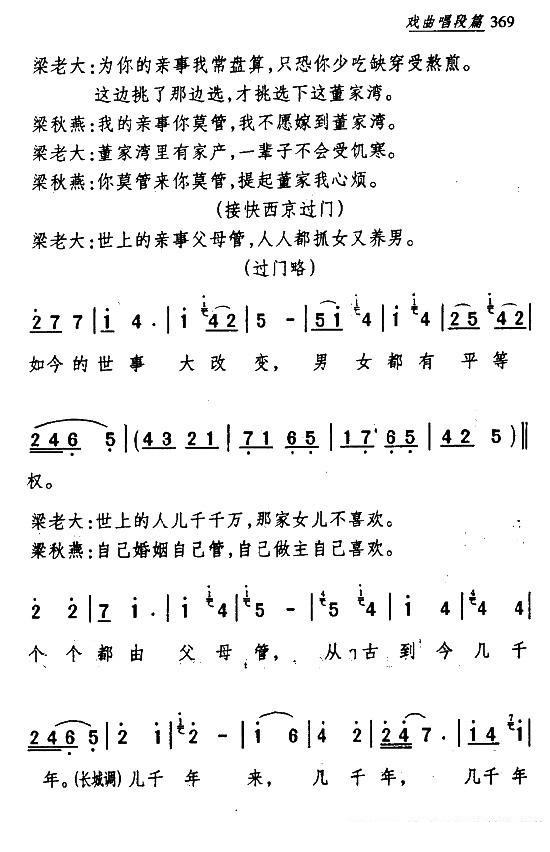 戏曲唱段篇 369
梁老大:为你的亲事我常盘算,只恐你少吃缺穿受熬煎。
这边挑了那边选,才挑选下这董家湾。
梁秋燕:我的亲事你莫管,我不愿嫁到董家湾。
梁老大:董家湾里有家产,一辈子不会受饥寒。
梁秋燕:你莫管来你莫管,提起董家我心烦。
(接快西京过门)
梁老大:世上的亲事父母管,人人都抓女又养男。
(过门略)
2 7 7 | 1 4 . | 1 1 4 2 | 5 - | 5 1 4 | 1 4 | 2 5 4 2 |
如今的世事 大改变, 男女都有平等
2 4 6 5 | (4 3 2 1 | 7 1 6 5 | 1 7 6 5 | 4 2 5 ) ‖
权。
梁老大:世上的人儿千千万,那家女儿不喜欢。
梁秋燕:自己婚姻自己管,自己做主自己喜欢。
2 2 | 7 1 . | 1 2 4 | 1 5 - | 4 5 4 5 | 1 4 | 4 4 4 |
个个都由父母管, 从古到今几千
2 4 6 5 | 2 1 | 1 2 - | 1 6 | 4 2 | 2 4 7 . | 1 4 7 1 |
年。(长城调)几千年来, 几千年, 几千年